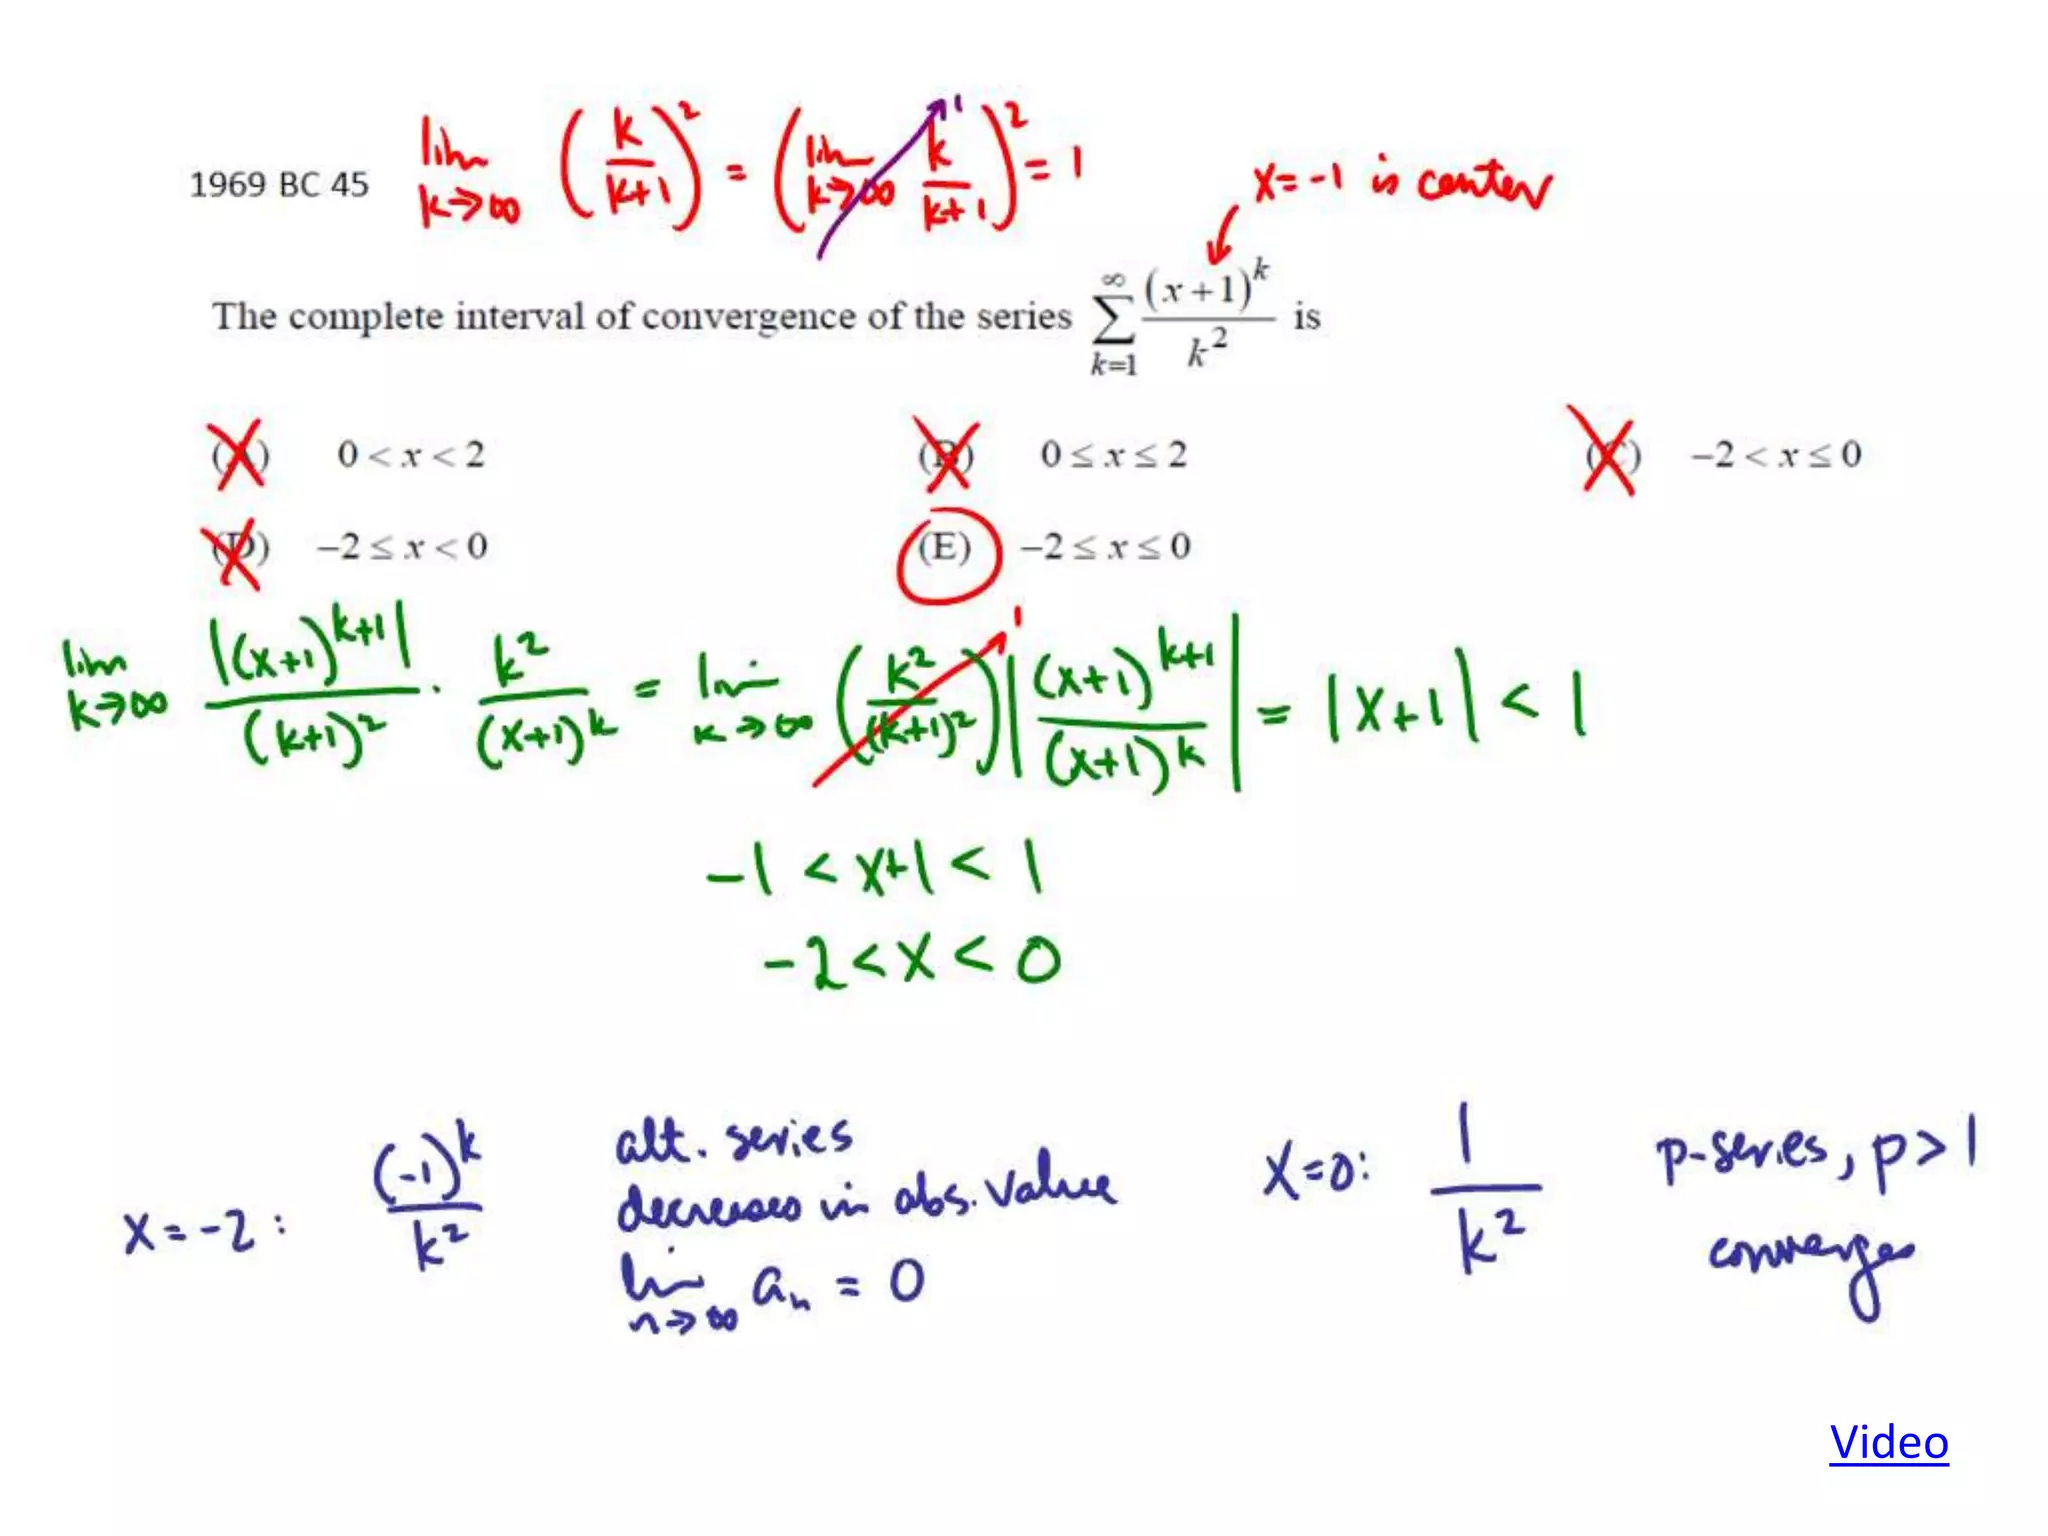 1969 BC 45
lim k→∞ (k/(k+1))² = (lim k→∞ k/(k+1))² = 1
1
x=-1 is center
The complete interval of convergence of the series ∑_{k=1}^{∞} (x+1)^k / k² is
(A) 0 < x < 2 (B) 0 ≤ x ≤ 2 (C) −2 < x ≤ 0
(D) −2 ≤ x < 0 (E) −2 ≤ x ≤ 0
1
lim k→∞ |(x+1)^{k+1}| / (k+1)² · k² / (x+1)^k = lim k→∞ (k²/(k+1)²) |(x+1)^{k+1} / (x+1)^k| = |x+1| < 1
-1 < x+1 < 1
-2 < x < 0
x=-2: (-1)^k / k²
alt. series
decreases in abs. value
lim n→∞ a_n = 0
x=0: 1/k²
p-series, p>1
converges
Video